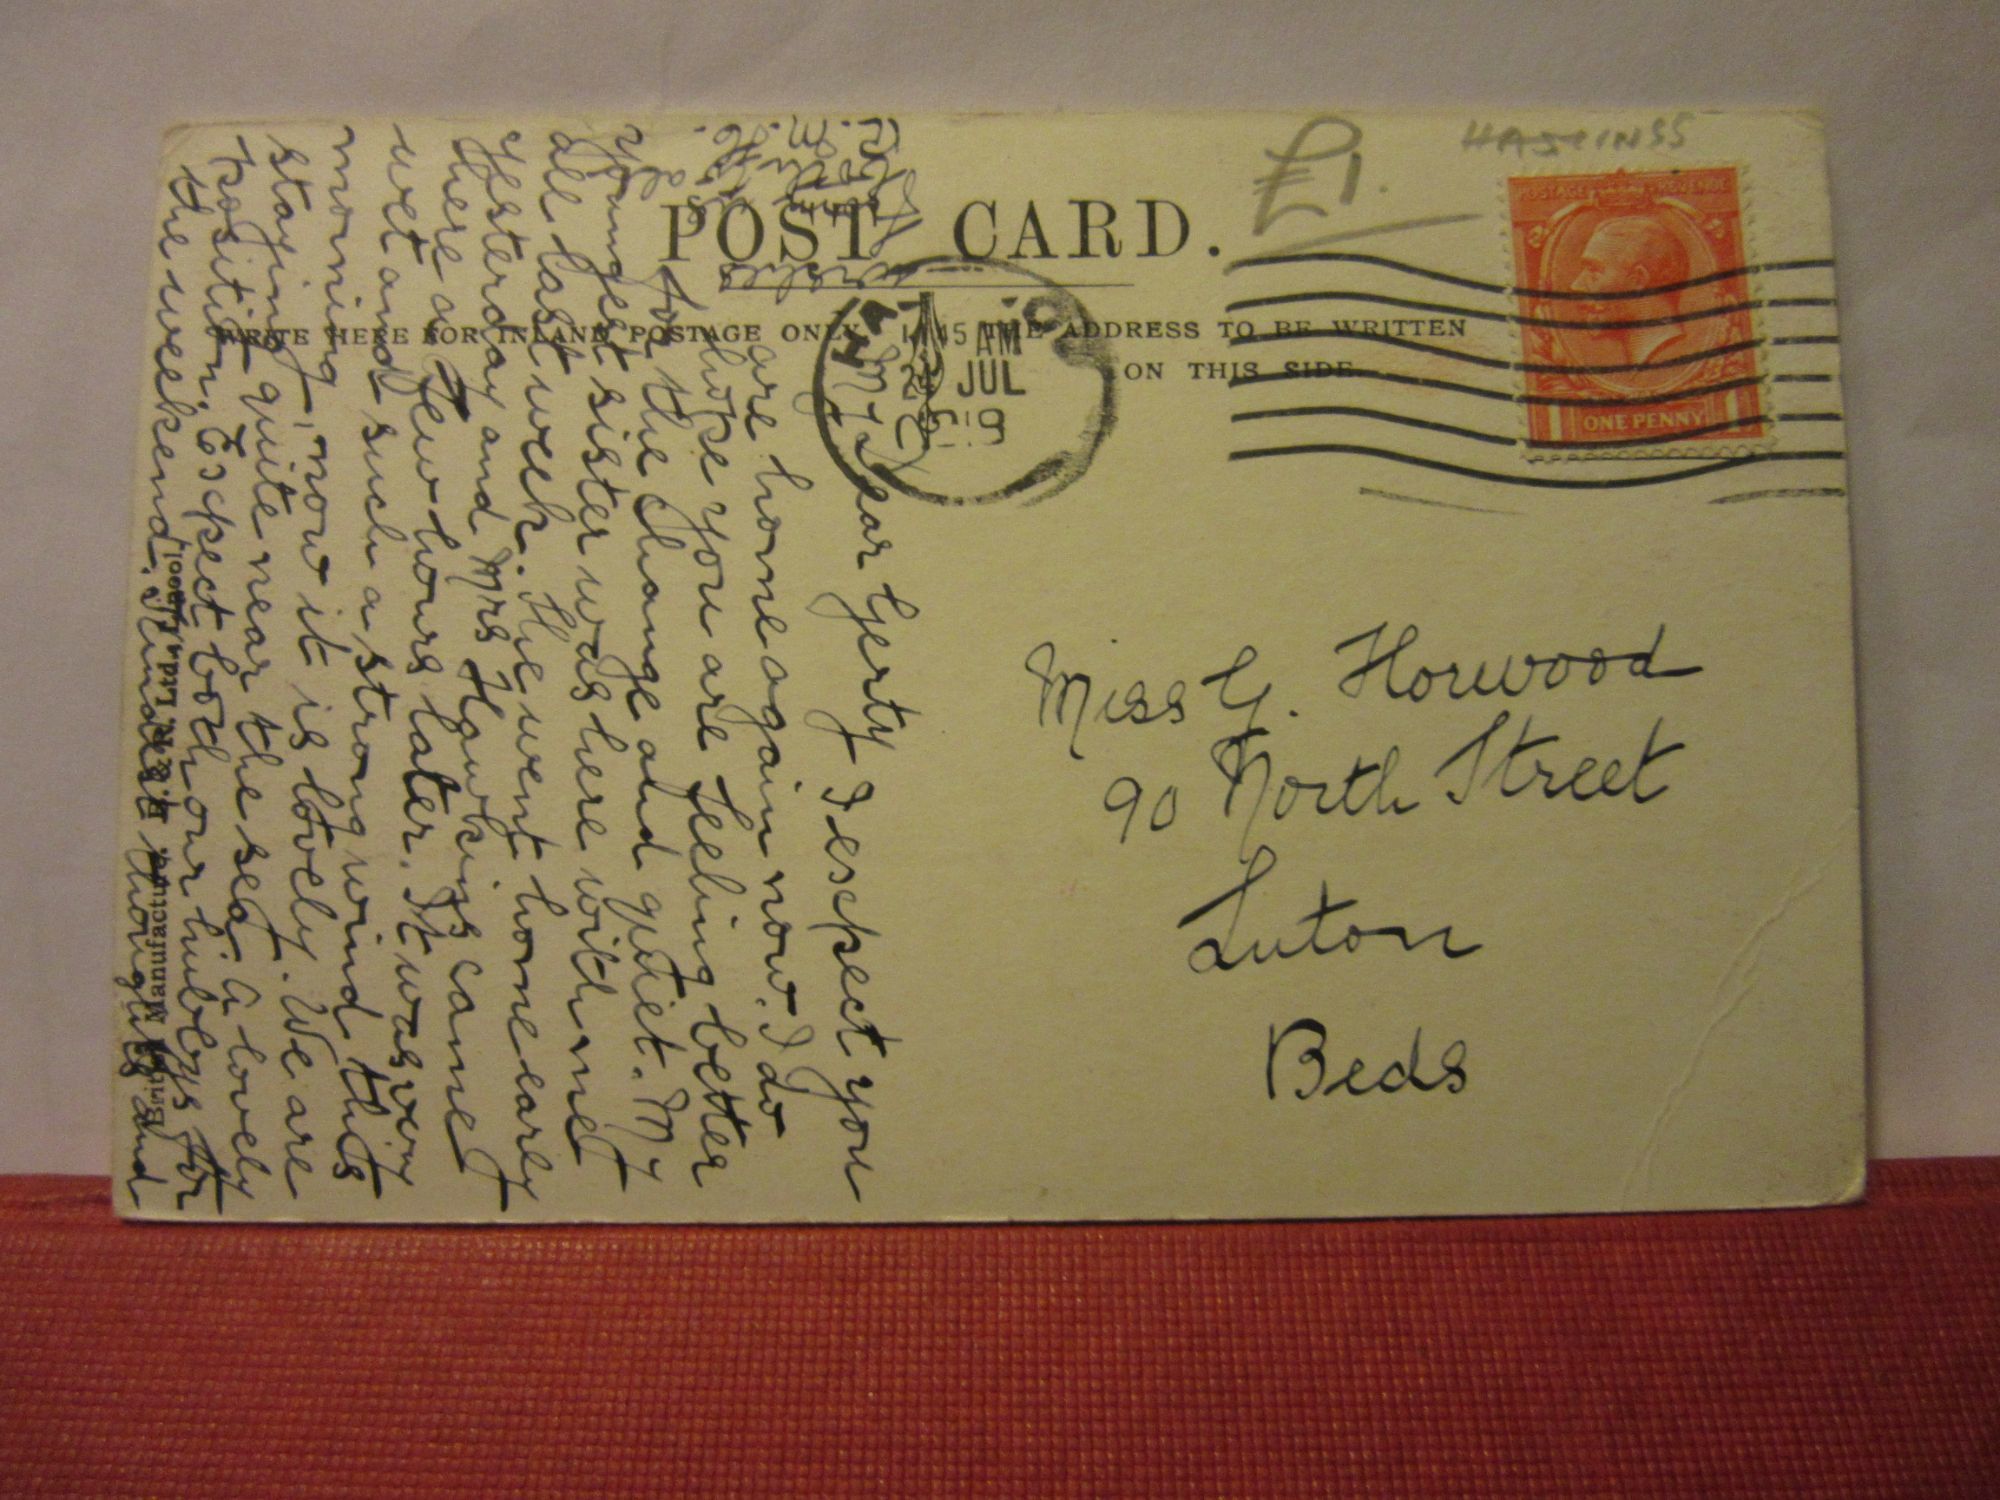 £1.
HASTINGS
POST CARD.
WRITE HERE FOR INLAND POSTAGE ONLY
THE ADDRESS TO BE WRITTEN
ON THIS SIDE.
POSTAGE REVENUE
ONE PENNY
45 AM
JUL
My Dear Gerty I escpect you
are home again now. I do
hope you are feeling better
for the change and quiet. My
youngest sister was here with me
all last week. She went home early
yesterday and Mrs Hawkins came
here a few hours later. It was very
wet and such a strong wind this
morning, now it is lovely. We are
staying quite near the sea a lovely
position. Escpect both our hubbys for
the weekend. Kindest thoughts and
Miss G. Horwood
90 North Street
Luton
Beds
British Manufacture